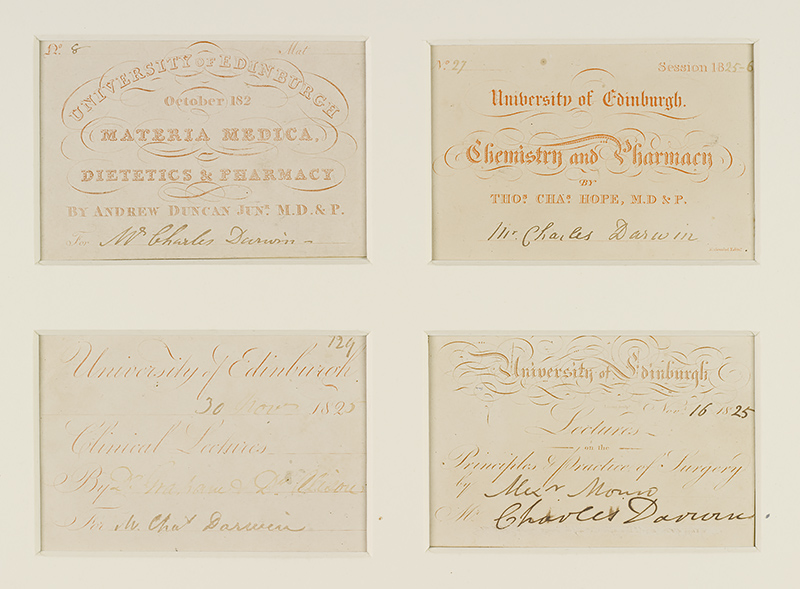 No. 8 Mat
UNIVERSITY OF EDINBURGH
October 182
MATERIA MEDICA,
DIETETICS & PHARMACY
BY ANDREW DUNCAN JUNR. M.D. & P.
For Mr. Charles Darwin
No. 27 Session 1825-6
University of Edinburgh.
Chemistry and Pharmacy
BY
THOS. CHAS. HOPE, M.D & P.
Mr. Charles Darwin
129
University of Edinburgh
30 Nov 1825
Clinical Lectures
By Dr. Graham & Dr.
For Mr. Chas Darwin
University of Edinburgh
Novr. 16 1825
Lectures
on the
Principles & Practice of Surgery
by Alexr Monro
Mr. Charles Darwin